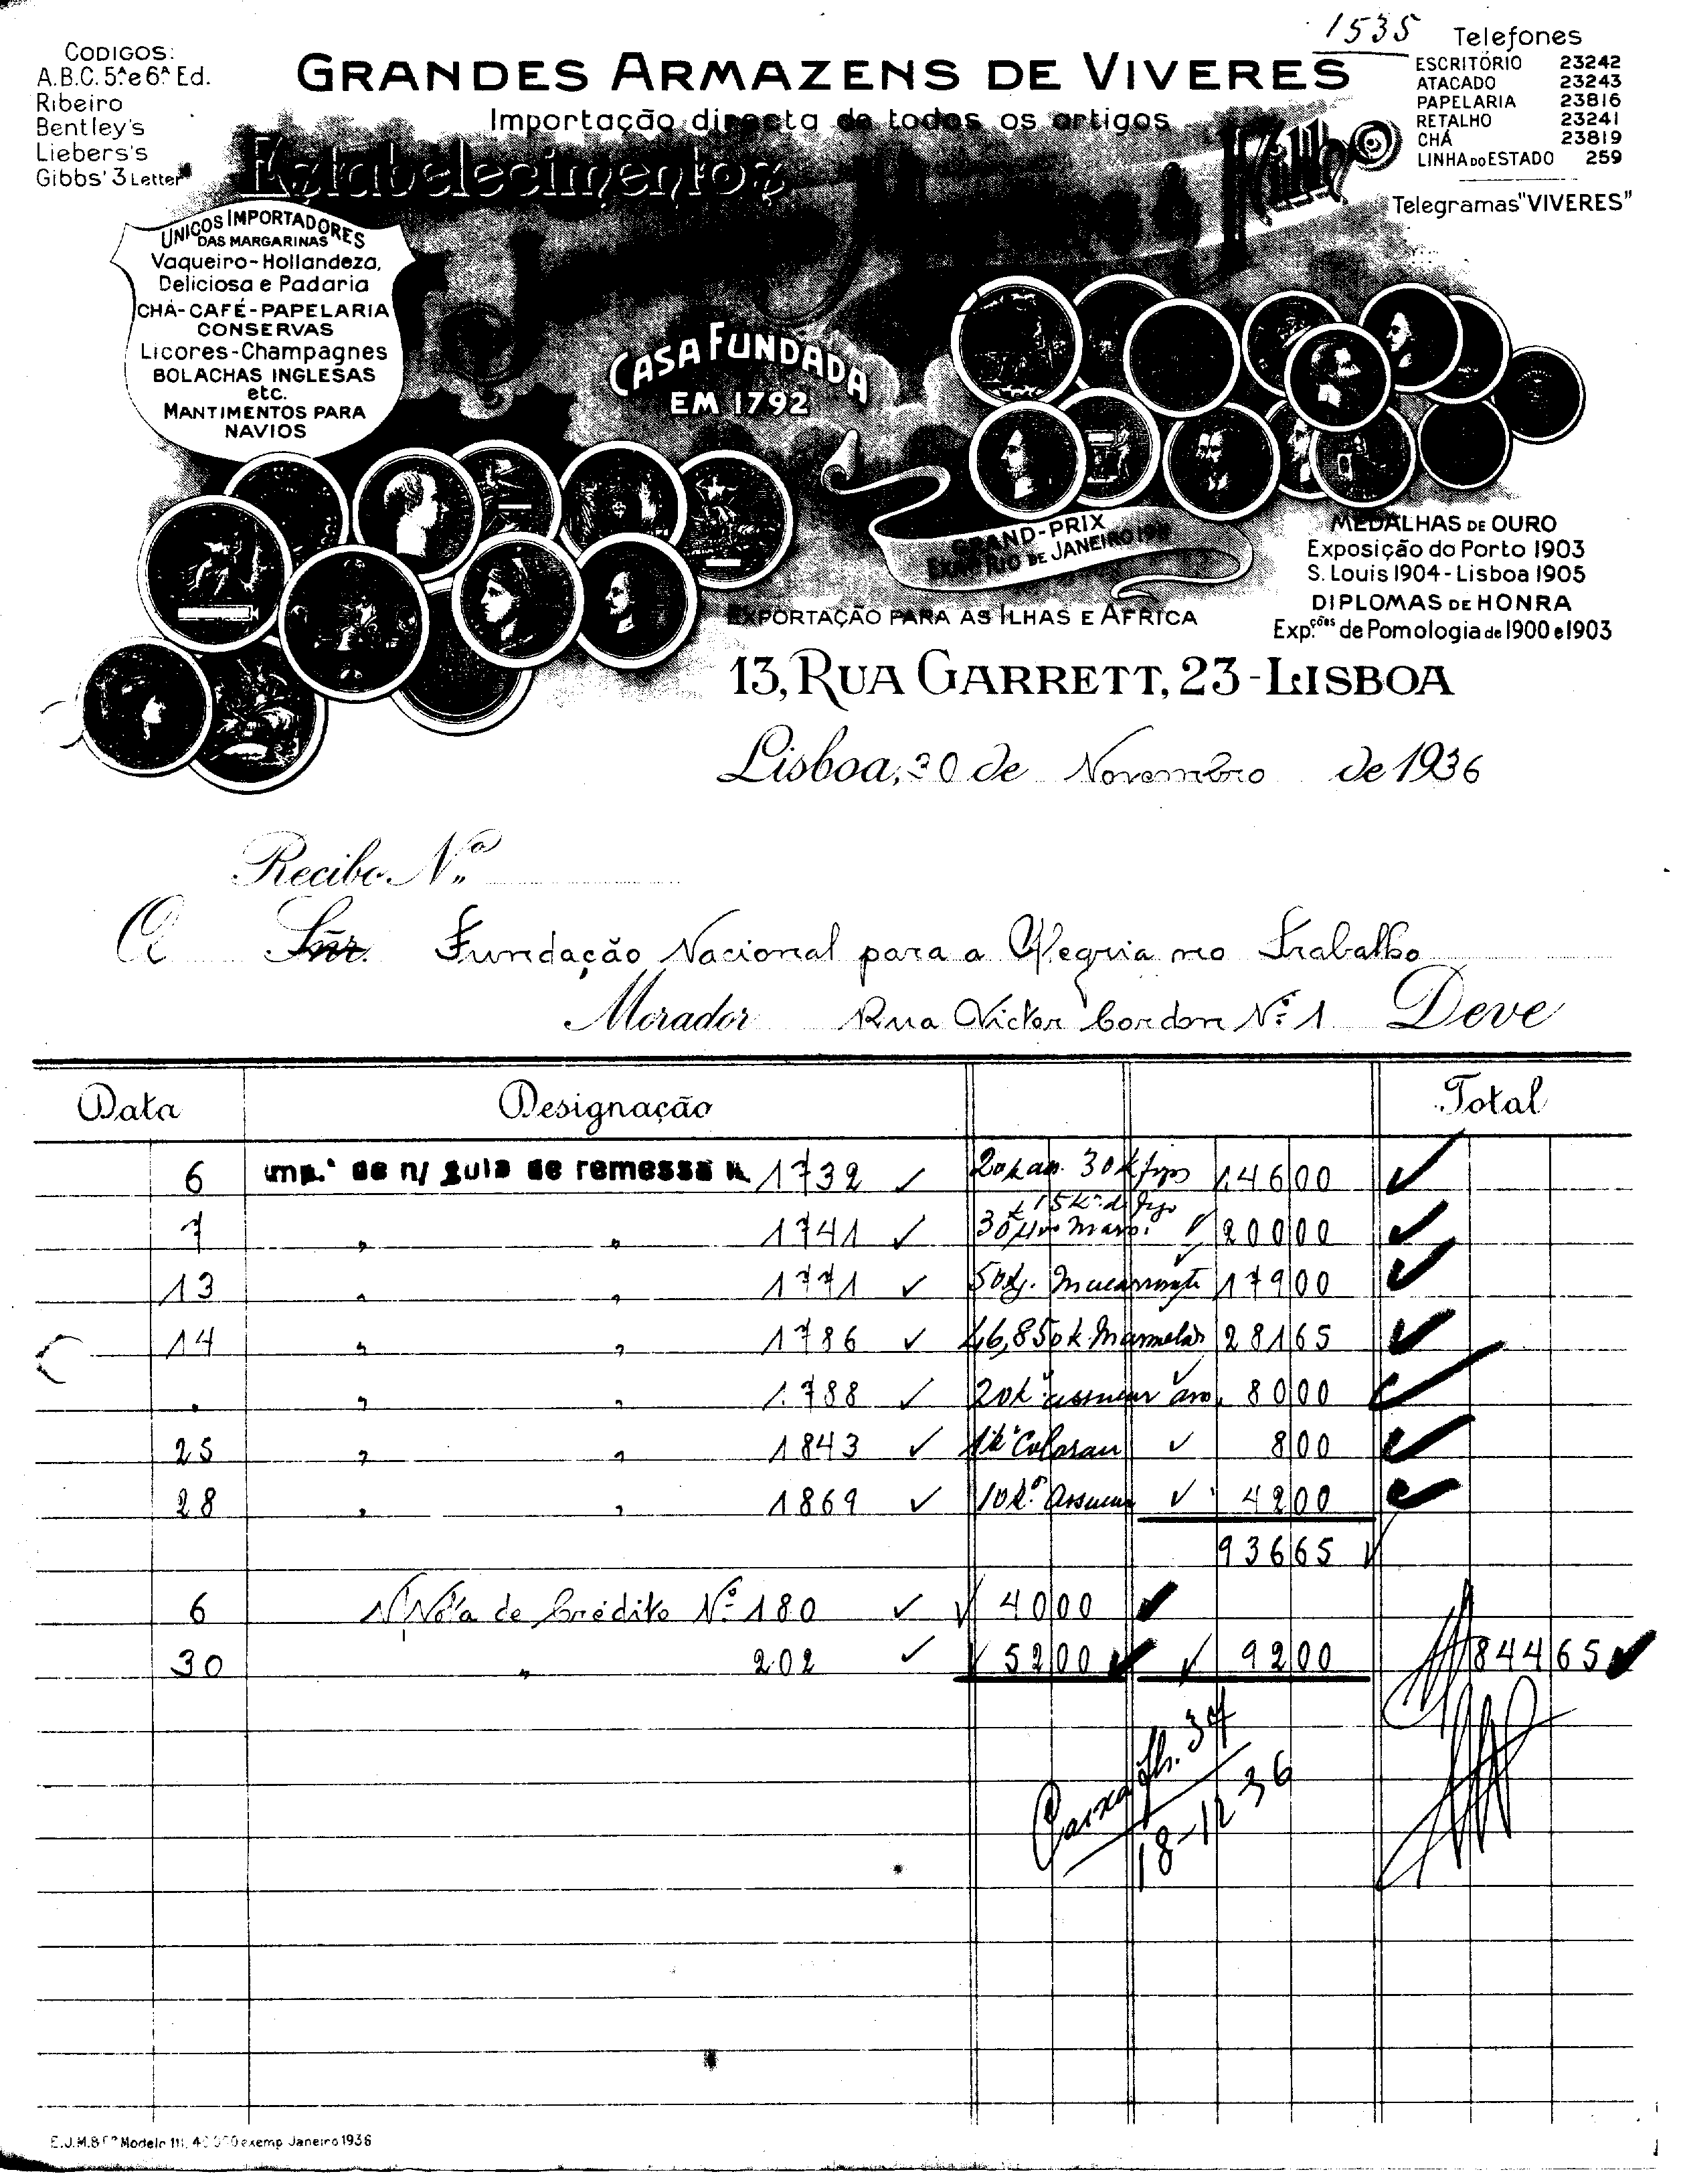 1535
CODIGOS:
A.B.C. 5ª e 6ª Ed.
Ribeiro
Bentley's
Liebers's
Gibbs' 3 Letter
GRANDES ARMAZENS DE VIVERES
Importação directa de todos os artigos
Telefones
ESCRITÓRIO 23242
ATACADO 23243
PAPELARIA 23816
RETALHO 23241
CHÁ 23819
LINHA DO ESTADO 259
Telegramas "VIVERES"
Estabelecimentos
& Filho
UNICOS IMPORTADORES
DAS MARGARINAS
Vaqueiro-Hollandeza,
Deliciosa e Padaria
CHÁ-CAFÉ-PAPELARIA
CONSERVAS
Licores-Champagnes
BOLACHAS INGLESAS
etc.
MANTIMENTOS PARA
NAVIOS
CASA FUNDADA
EM 1792
GRAND-PRIX
RIO DE JANEIRO
MEDALHAS DE OURO
Exposição do Porto 1903
S. Louis 1904-Lisboa 1905
DIPLOMAS DE HONRA
Exp.ções de Pomologia de 1900 e 1903
EXPORTAÇÃO PARA AS ILHAS E AFRICA
13, RUA GARRETT, 23-LISBOA
Lisboa, 30 de Novembro de 1936
Recibo Nº
A Snr. Fundação Nacional para a Alegria no Trabalho
Morador Rua Victor Cordon Nº 1 Deve
Data Designação Total
6 de n/ guia de remessa 1732 30 k 146 00
+ 15 k.
7 " " 1741 200 00
13 " " 1771 179 00
14 " " 1786 46,850 k. 281 65
" " " 1788 20 k 80 00
25 " " 1843 1 k Colorau 8 00
28 " " 1869 10 k.º 42 00
936 65
6 N/Nota de Crédito Nº 180 40 00
30 " 202 52 00 92 00 844 65
Caixa fls. 37
18-12 36
Modelo exemp Janeiro 1936